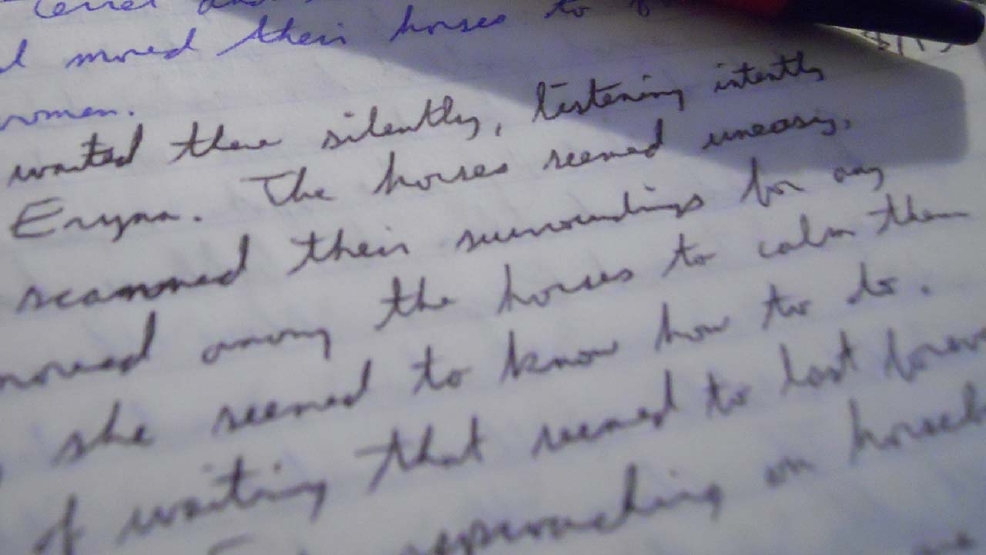 moved their horses to
women.
waited there silently, listening intently
Erynn. The horses seemed uneasy,
scanned their surroundings for any
moved among the horses to calm them
she seemed to know how to do.
of waiting that seemed to last
approaching on